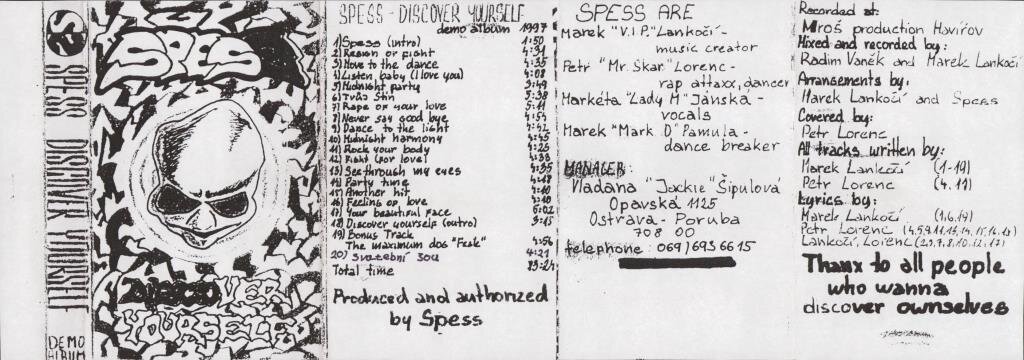 SPESS DISCOVER YOURSELF
DEMO
ALBUM
SPESS
DISCOVER
YOURSELF
SPESS - DISCOVER YOURSELF
demo album 1997
1) Spess (intro) 1:50
2) Reason or right 4:31
3) Move to the dance 4:35
4) Listen, baby (I love you) 4:08
5) Midnight party 3:49
6) Tvůj Stín 5:38
7) Rape of your love 5:11
8) Never say good bye 4:54
9) Dance to the light 4:42
10) Midnight harmony 4:45
11) Rock your body 4:25
12) Fight (for love) 4:33
13) See through my eyes 4:35
14) Party time 4:48
15) Another hit 4:10
16) Feeling of love 4:40
17) Your beautiful face 6:02
18) Discover yourself (outro) 3:15
19) Bonus Track
The maximum dog "Fesk" 4:56
20) svatební sou 4:21
Total time 83:24
Produced and authorized
by Spess
SPESS ARE
Marek "V.I.P." Lankočí -
music creator
Petr "Mr. Škar" Lorenc -
rap attaxx, dancer
Markéta "Lady M" Jánská -
vocals
Marek "Mark D" Pamula -
dance breaker
MANAGER:
Vladana "Jackie" Šipulová
Opavská 1125
Ostrava - Poruba
708 00
telephone: 069/693 66 15
Recorded at:
Miroš production Havířov
Mixed and recorded by:
Radim Vaněk and Marek Lankočí
Arrangements by:
Marek Lankočí and Spess
Covered by:
Petr Lorenc
All tracks written by:
Marek Lankočí (1-19)
Petr Lorenc (4,11)
Lyrics by:
Marek Lankočí (1,6,19)
Petr Lorenc (4,5,9,11,13,14,15,16,18)
Lankočí, Lorenc (2,3,7,8,10,12,17)
Thanx to all people
who wanna
discover ownselves